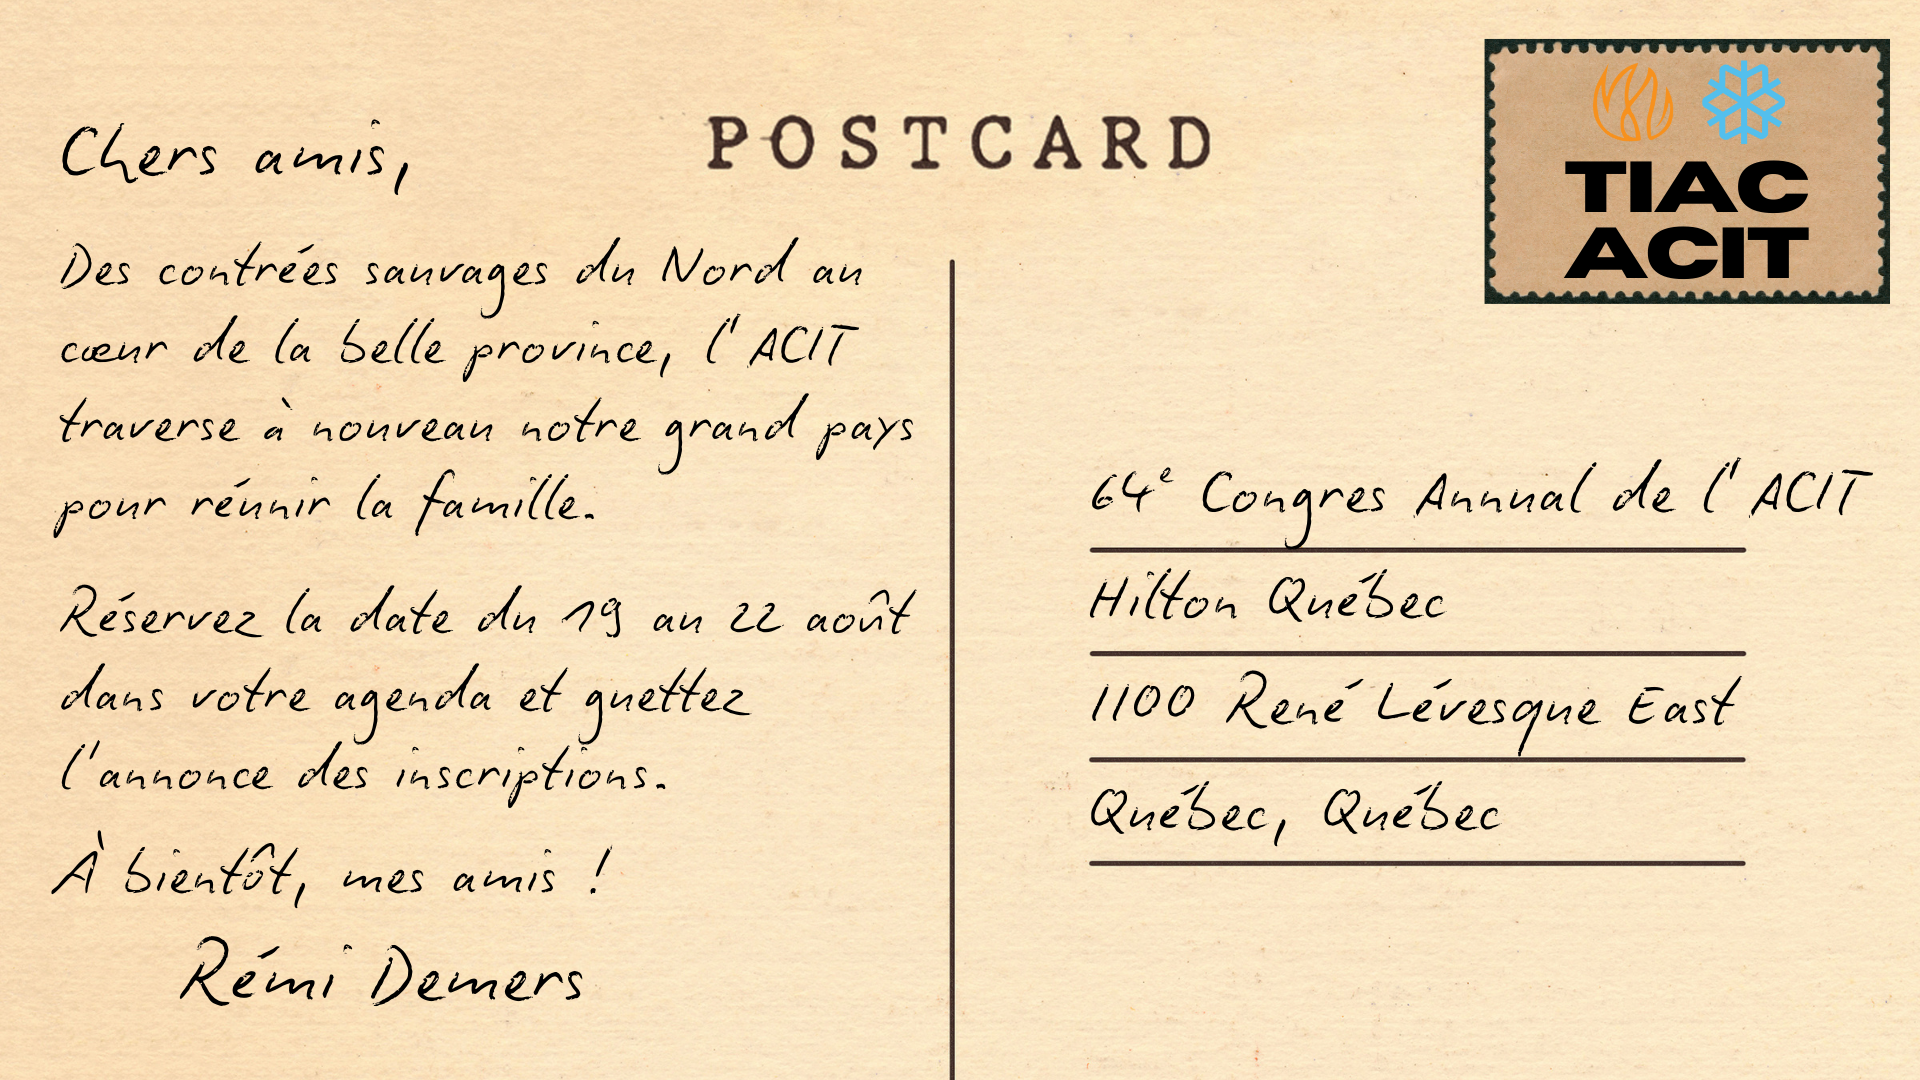 POSTCARD
TIAC
ACIT
Chers amis,
Des contrées sauvages du Nord au
cœur de la belle province, l'ACIT
traverse à nouveau notre grand pays
pour réunir la famille.
Réservez la date du 19 au 22 août
dans votre agenda et guettez
l'annonce des inscriptions.
À bientôt, mes amis !
Rémi Demers
64e Congres Annual de l'ACIT
Hilton Québec
1100 René Lévesque East
Québec, Québec